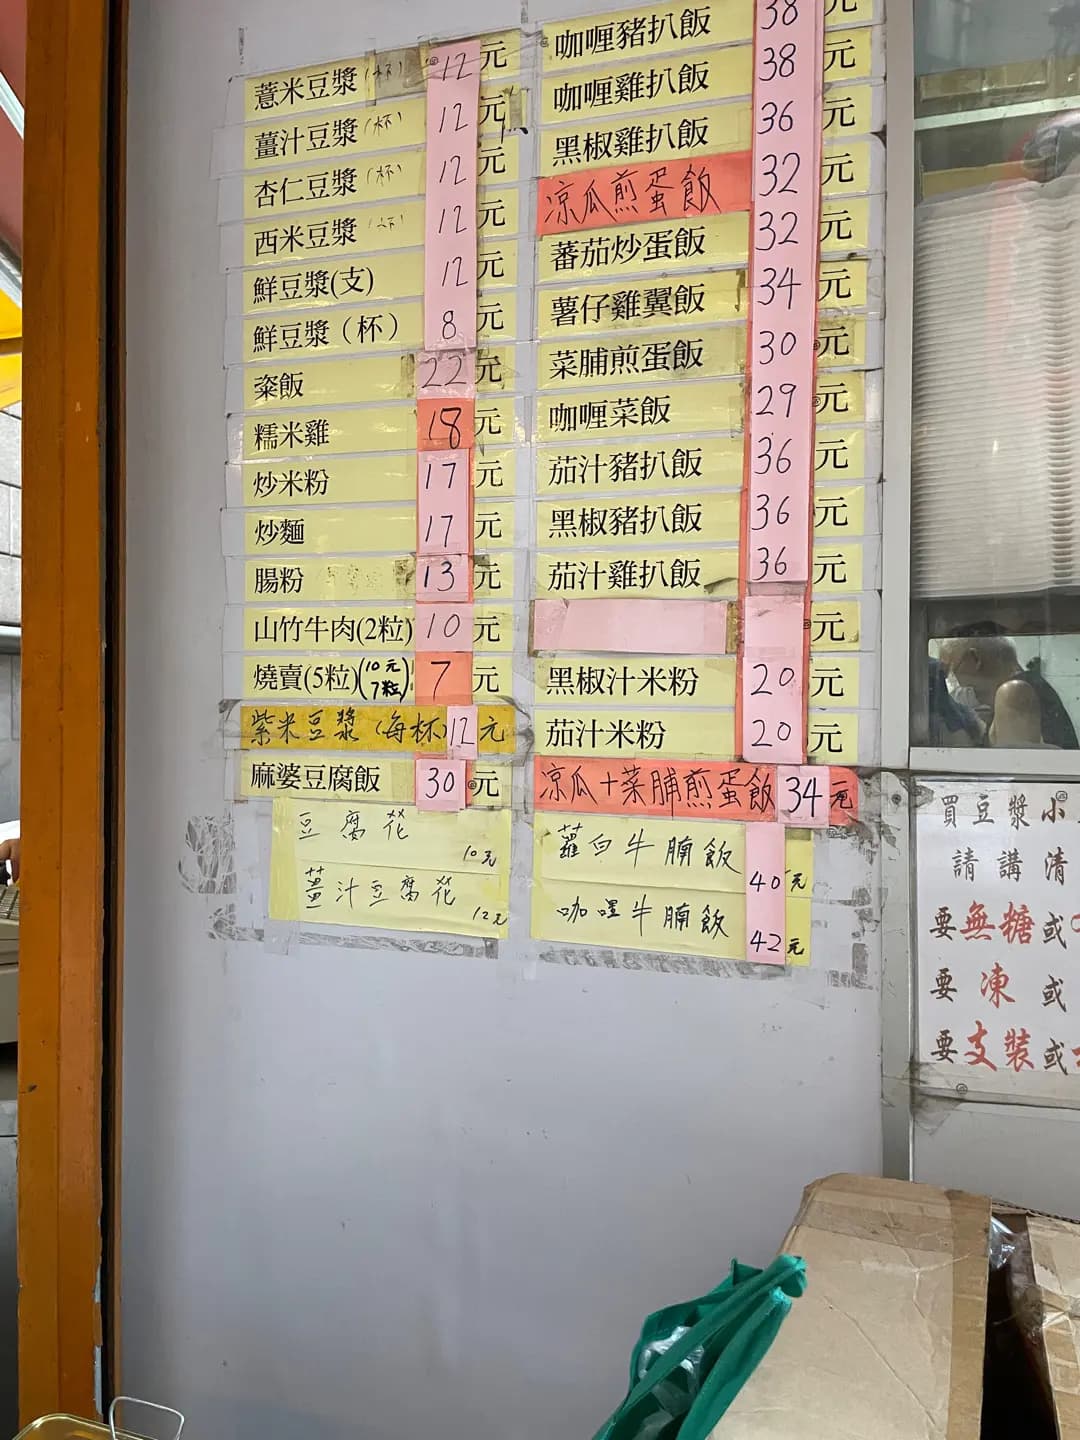 薏米豆漿(杯) 12元
薑汁豆漿(杯) 12元
杏仁豆漿(杯) 12元
西米豆漿(杯) 12元
鮮豆漿(支) 12元
鮮豆漿(杯) 8元
粢飯 22元
糯米雞 18元
炒米粉 17元
炒麵 17元
腸粉 13元
山竹牛肉(2粒) 10元
燒賣(5粒)(10元7粒) 7元
紫米豆漿(每杯) 12元
麻婆豆腐飯 30元
豆腐花 10元
薑汁豆腐花 12元
咖喱豬扒飯 38元
咖喱雞扒飯 38元
黑椒雞扒飯 36元
凉瓜煎蛋飯 32元
蕃茄炒蛋飯 32元
薯仔雞翼飯 34元
菜脯煎蛋飯 30元
咖喱菜飯 29元
茄汁豬扒飯 36元
黑椒豬扒飯 36元
茄汁雞扒飯 36元
元
黑椒汁米粉 20元
茄汁米粉 20元
凉瓜+菜脯煎蛋飯 34元
蘿白牛腩飯 40元
咖喱牛腩飯 42元
買豆漿小
請講清
要無糖或
要凍或
要支裝或